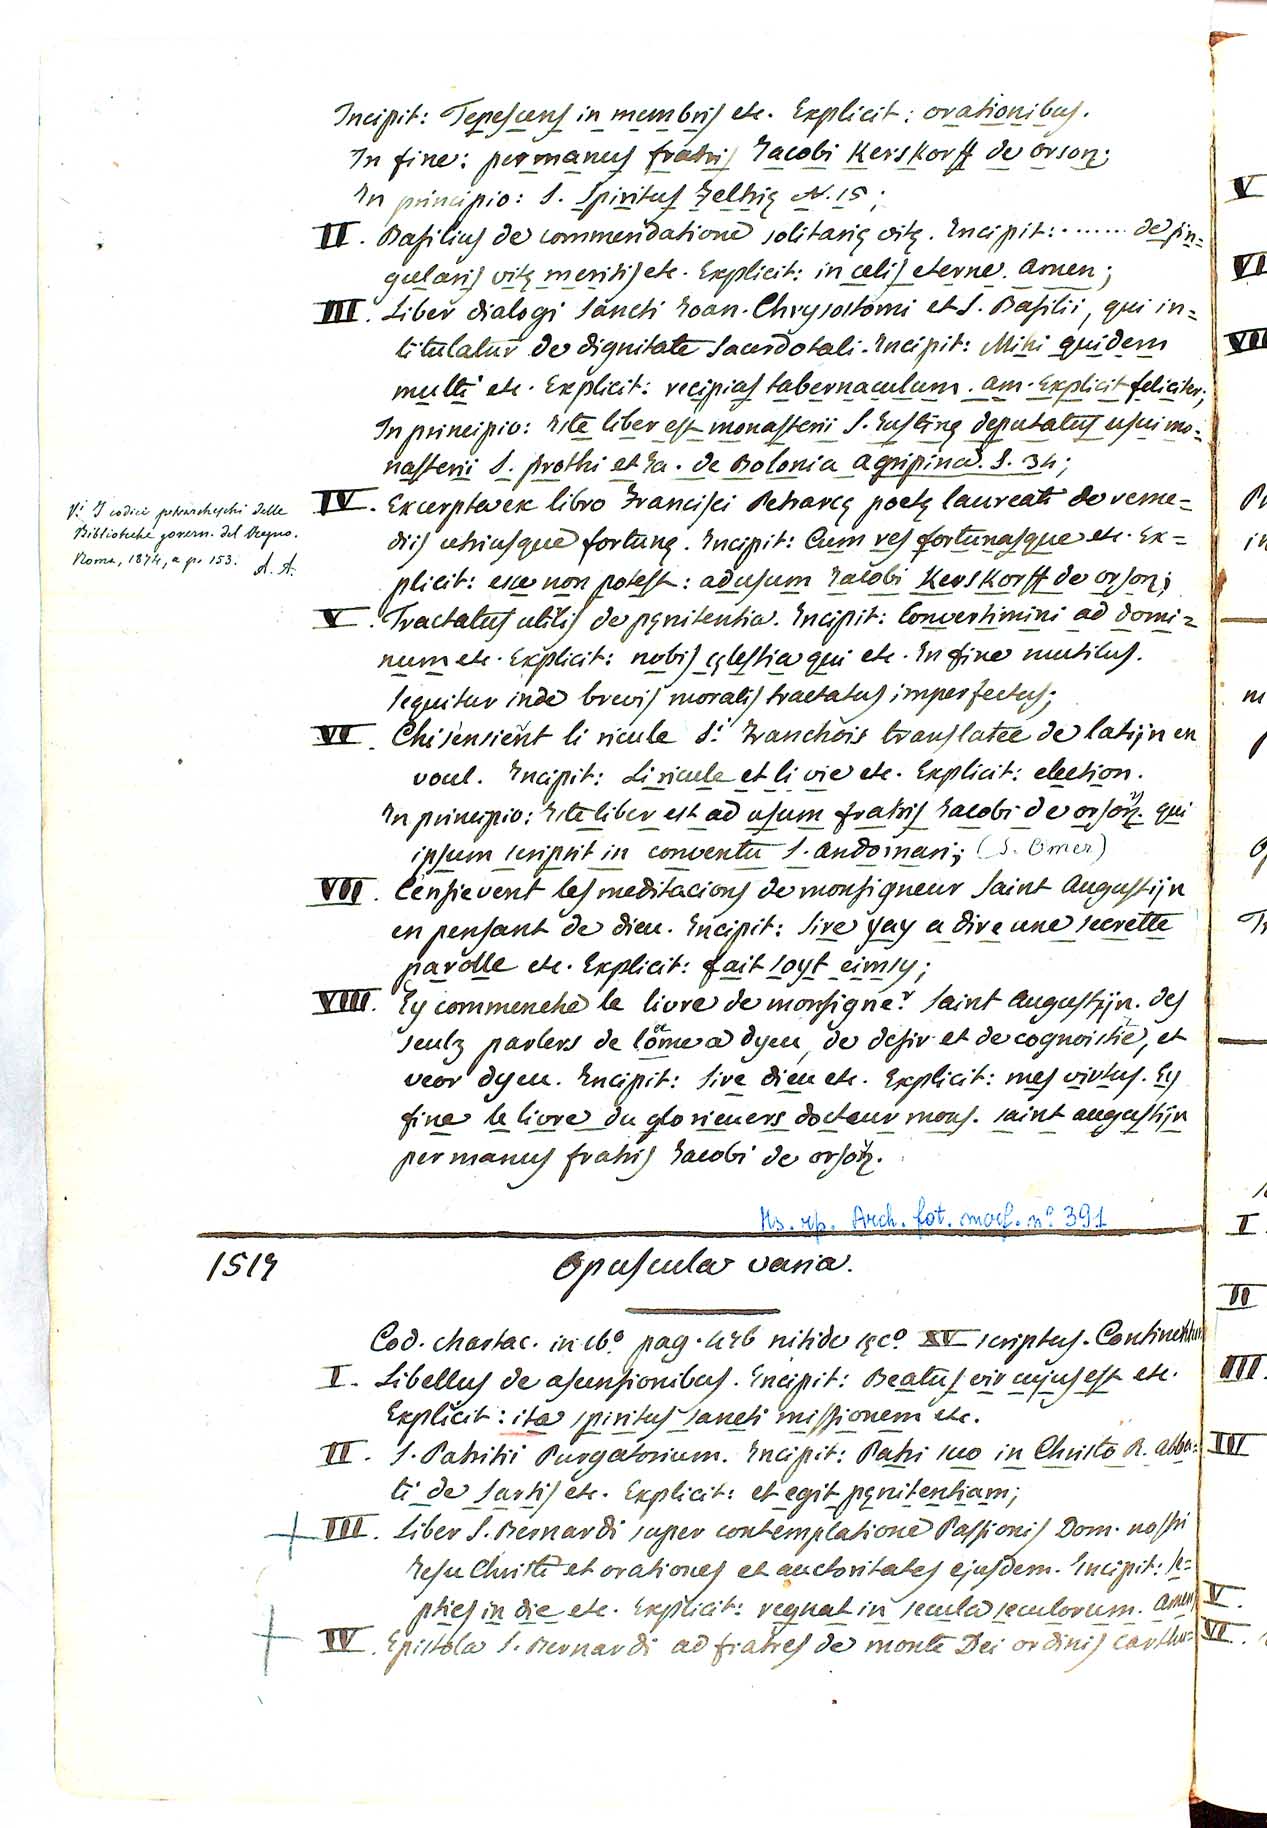 Incipit: Tepescens in membris etc. Explicit: orationibus.
In fine: per manus fratris Jacobi Kerskorff de orsoӡ;
In principio: S. Spiritus Feltrię N. 15;
II. Basilius de commendatione solitarię vitę. Incipit: ...... de sin=
gularis vitę meritis etc. Explicit: in celis eterne. amen;
III. Liber dialogi Sancti Joan. Chrysostomi et S. Basilii, qui in=
titulatur de dignitate Sacerdotali. Incipit: Mihi quidem
multi etc. Explicit: recipias tabernaculum. am. Explicit feliciter;
In principio: Iste liber est monasterii S. Justinę deputatus usui mo=
nasterii S. Prothi et Ja. de Bolonia Agripina. S. 34;
IV. Excerpta ex libro Francisci Petrarcę poetę laureati de reme=
diis utriusque fortunę. Incipit: Cum res fortunasque etc. Ex=
plicit: esse non potest: ad usum Jacobi Kerskorff de orsoӡ;
Vi. I codici petrarcheschi delle
Biblioteche govern. del Regno.
Roma, 1874, a p. 153. A. A.
V. Tractatus utilis de pęnitentia. Incipit: Convertimini ad domi=
num etc. Explicit: nobis cęlestia qui etc. In fine mutilus.
Sequitur inde brevis moralis tractatus imperfectus;
VI. Chi sensieut li ricule St Franchois translatee de latijn en
voul. Incipit: Li ricule et li vie etc. Explicit: election.
In principio: Iste liber est ad usum fratris Jacobi de orsoӡ. qui
ipsum scripsit in conventu S. Andomari; (S. Omer)
VII. Censievent les meditacions de monsigneur Saint Augustijn
en pensant de dieu. Incipit: Sire yay a dire une secrette
parolle etc. Explicit: fait soyt eimsy;
VIII. Ey commenche le livre de monsigner Saint Augustijn. des
seulz parlers de lome a dyeu, de desir et de cognoistre, et
veor dyeu. Incipit: Sire dieu etc. Explicit: mes virtus. Ey
fine le livre du glorieuers docteur mons. saint augustijn
per manus fratris Jacobi de orsoӡ.
Ms. rp. Arch. fot. morf. n.o 391
1517 Opuscula varia.
Cod. chartac. in 16.o pag. 446 nitide sęc.o XV scriptus. Continentur
I. Libellus de asensionibus. Incipit: Beatus vir cujus est etc.
Explicit: ita spiritus sancti missionem etc.
II. S. Patritii Purgatorium. Incipit: Patri suo in Christo R. abba=
ti de Sartis etc. Explicit: et egit pęnitentiam;
III. Liber S. Bernardi super contemplatione Passionis Dom. nostri
Jesu Christi et orationes et auctoritates ejusdem. Incipit: Se=
pties in die etc. Explicit: regnat in secula seculorum. amen
IV. Epistola S. Bernardi ad fratres de monte Dei ordinis carthu=
V
VI
VII
I
II
III
IV
V.
VI.